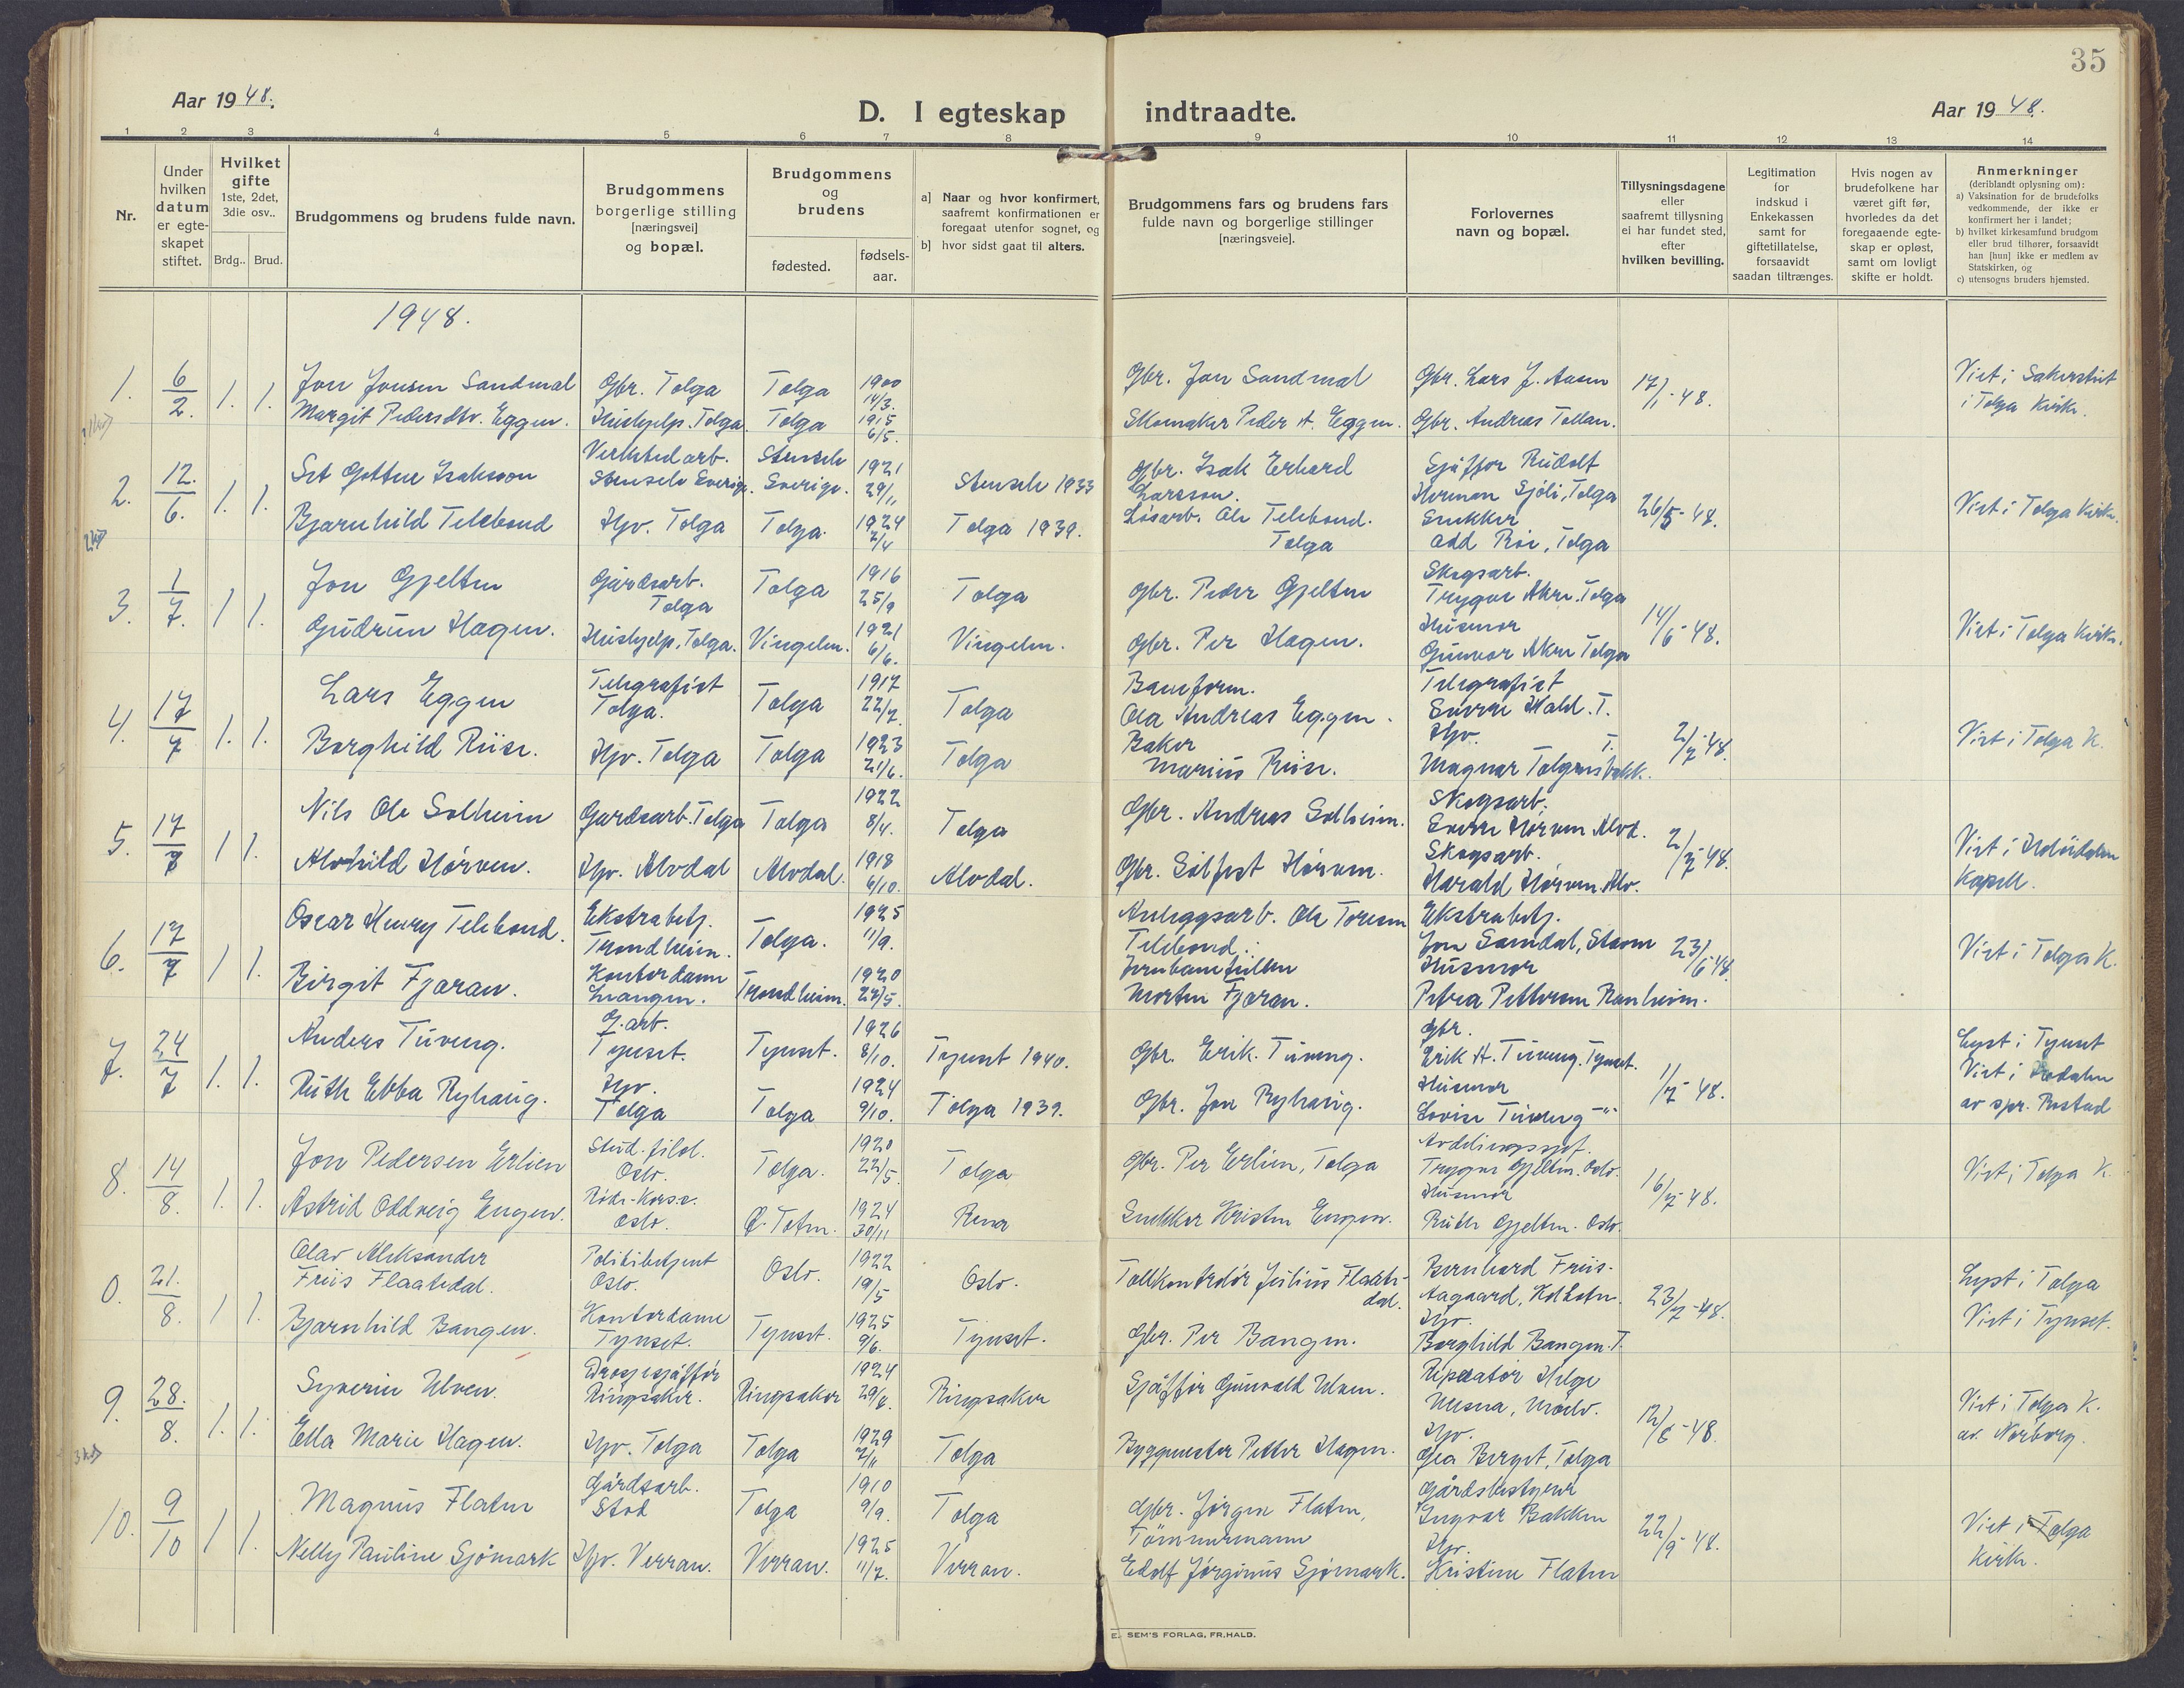 35
Aar 1948.
D. I egteskap indtraadte.
Aar 1948.
1 2 3 4 5 6 7 8 9 10 11 12 13 14
Nr.
Under hvilken datum er egteskapet stiftet.
Hvilket gifte 1ste, 2det, 3die osv..
Brdg..
Brud.
Brudgommens og brudens fulde navn.
Brudgommens borgerlige stilling [næringsvei] og bopæl.
Brudgommens og brudens
fødested.
fødsels-aar.
a] Naar og hvor konfirmert, saafremt konfirmationen er foregaat utenfor sognet, og
b] hvor sidst gaat til alters.
Brudgommens fars og brudens fars fulde navn og borgerlige stillinger [næringsveie].
Forlovernes navn og bopæl.
Tillysningsdagene eller saafremt tillysning ei har fundet sted, efter hvilken bevilling.
Legitimation for indskud i Enkekassen samt for giftetillatelse, forsaavidt saadan tiltrænges.
Hvis nogen av brudefolkene har været gift før, hvorledes da det foregaaende egteskap er opløst, samt om lovligt skifte er holdt.
Anmerkninger (deriblandt oplysning om):
a) Vaksination for de brudefolks vedkommende, der ikke er konfirmert her i landet;
b) hvilket kirkesamfund brudgom eller brud tilhører, forsaavidt han [hun] ikke er medlem av Statskirken, og
c) utensogns bruders hjemsted.
1948.
1. 6/2. 1. 1. Jon Jonsen Sandmal Gbr. Tolga Tolga 1900 14/3. Gbr. Jon Sandmal Gbr. Lars J. Aasen 17/1-48. Viet i Sakerstiet i Tolga Kirke.
Margit Pedersdtr. Eggen. Hushjelp. Tolga. Tolga 1915 6/5. Skomaker Peder A. Eggen. Gbr. Andreas Tollan.
2. 12./6. 1. 1. Set Gottne Isaksson Verkstedarb. Stensele Sverige. Stensele Sverige. 1921 29/11 Stensele 1933 Gbr. Isak Erhard Larsson. Sjåffør Rudolf Herman Sjøli, Tolga 26/5-48. Viet i Tolga Kirke.
Bjarnhild Telebond Hjv. Tolga Tolga. 1924 2/4 Tolga 1939. Løsarb. Ole Telebond. Tolga Snekker Odd Røe, Tolga
3. 1/7. 1 1. Jon Gjelten Gårdsarb. Tolga Tolga 1916 25/9 Tolga Gbr. Peder Gjelten Skogsarb. Trygve Akre. Tolga 14/6-48. Viet i Tolga Kirke.
Gudrun Hagen. Hushjelp. Tolga. Vingelen. 1921 6/6. Vingelen. Gbr. Per Hagen. Husmor Gunvor Akre Tolga
4. 17/7 1. 1. Lars Eggen Telegrafist Tolga. Tolga 1917 22/7. Tolga Baneform. Ola Andreas Eggen. Telegrafist Sverre Hald. T. 2/7-48. Viet i Tolga K.
Borghild Riise. Hjv. Tolga Tolga 1923 21/6. Tolga Baker Marius Riise. Hjv. T. Magnar Tolgensbakk.
5. 17/7 1 1. Nils Ole Solheim Gardsarb. Tolga Tolga 1922 8/4. Tolga Gbr. Andreas Solheim. Skogsarb. Sverre Hørven Alvd. 2/7-48. Viet i Kapell.
Alvhild Hørven. Hjv. Alvdal Alvdal. 1918 6/10. Alvdal. Gbr. Sølfest Hørven. Skogsarb. Harald Hørven. Alv.
6. 17/7 1 1. Oscar Henry Telebond. Ekstrabetj. Trondheim. Tolga. 1925 11/9. Anleggsarb. Ole Toresen Telebond. Ekstrabetj. Jon Samdal, Støren 23/6-48 Viet i Tolga K.
Birgit Fjaran. Kontordame Trondheim. 1920 24/5. Morten Fjaran. Husmor Petra Pettersen Ranheim.
7. 24/7 1. 1. Anders Tuveng. G.arb. Tynset. Tynset. 1926 8/10. Tynset 1940. Gbr. Erik. Tuveng. Gbr. Erik H. Tuveng. Tynset. 1/7-48. Lyst i Tynset Viet i av spr. Rustad
Ruth Ebba Ryhaug. Hjv. Tolga Tolga 1924 9/10. Tolga 1939. Gbr. Jon Ryhaug. Husmor Lovise Tuveng -"-
8. 14/8. 1. 1. Jon Pedersen Erlien Stud. filol. Oslo. Tolga. 1920 22/5. Tolga Gbr. Per Erlien, Tolga Avdelingssjef. Trygve Gjelten. Oslo. 16/7-48. Viet i Tolga K.
Astrid Oddveig Engen. Oslo. Ø. Toten. 1924 30/11 Rena Snekker Kristen Engen. Husmor Ruth Gjelten. Oslo.
0. 21./8. 1 1. Olav Aleksander Friis Flaatedal. Politibetjent Oslo. Oslo. 1922 19/5 Oslo. Tollkontrolør Julius Flaatedal. Bernhard Friis-Aagaard, Holleten. 23/7-48. Lyst i Tolga Viet i Tynset.
Bjarnhild Bangen. Kontordame Tynset. Tynset. 1925 9/6. Tynset. Gbr. Per Bangen. Hjv. Borghild Bangen. T.
9. 28./8. 1. 1. Syverin Ulven. Drosjesjåffør Ringsaker. Ringsaker 1924 29/6. Ringsaker Sjåffør Gunvald Ulven. Reparatør Helge Mesna, Moelv. 12/8-48. Viet i Tolga K. av. Norborg.
Ella Marie Hagen. Hjv. Tolga Tolga 1929 2/11 Tolga Byggmester Petter Hagen. Hjv. Gea Berget, Tolga
10. 9/10 1 1. Magnus Flaten Gårdsarb. Stod Tolga 1910 9/9. Tolga Gbr. Jørgen Flaten, Gårdsbestyrer Ingvar Bakken 22/9-48. Viet i Tolga Kirke.
Nelly Pauline Sjømark Hjv. Verran. Verran. 1925 11/7. Verran. Tømmermann Edolf Jørginus Sjømark. Hjv. Kristine Flaten
E. SEM'S FORLAG, FR.HALD.